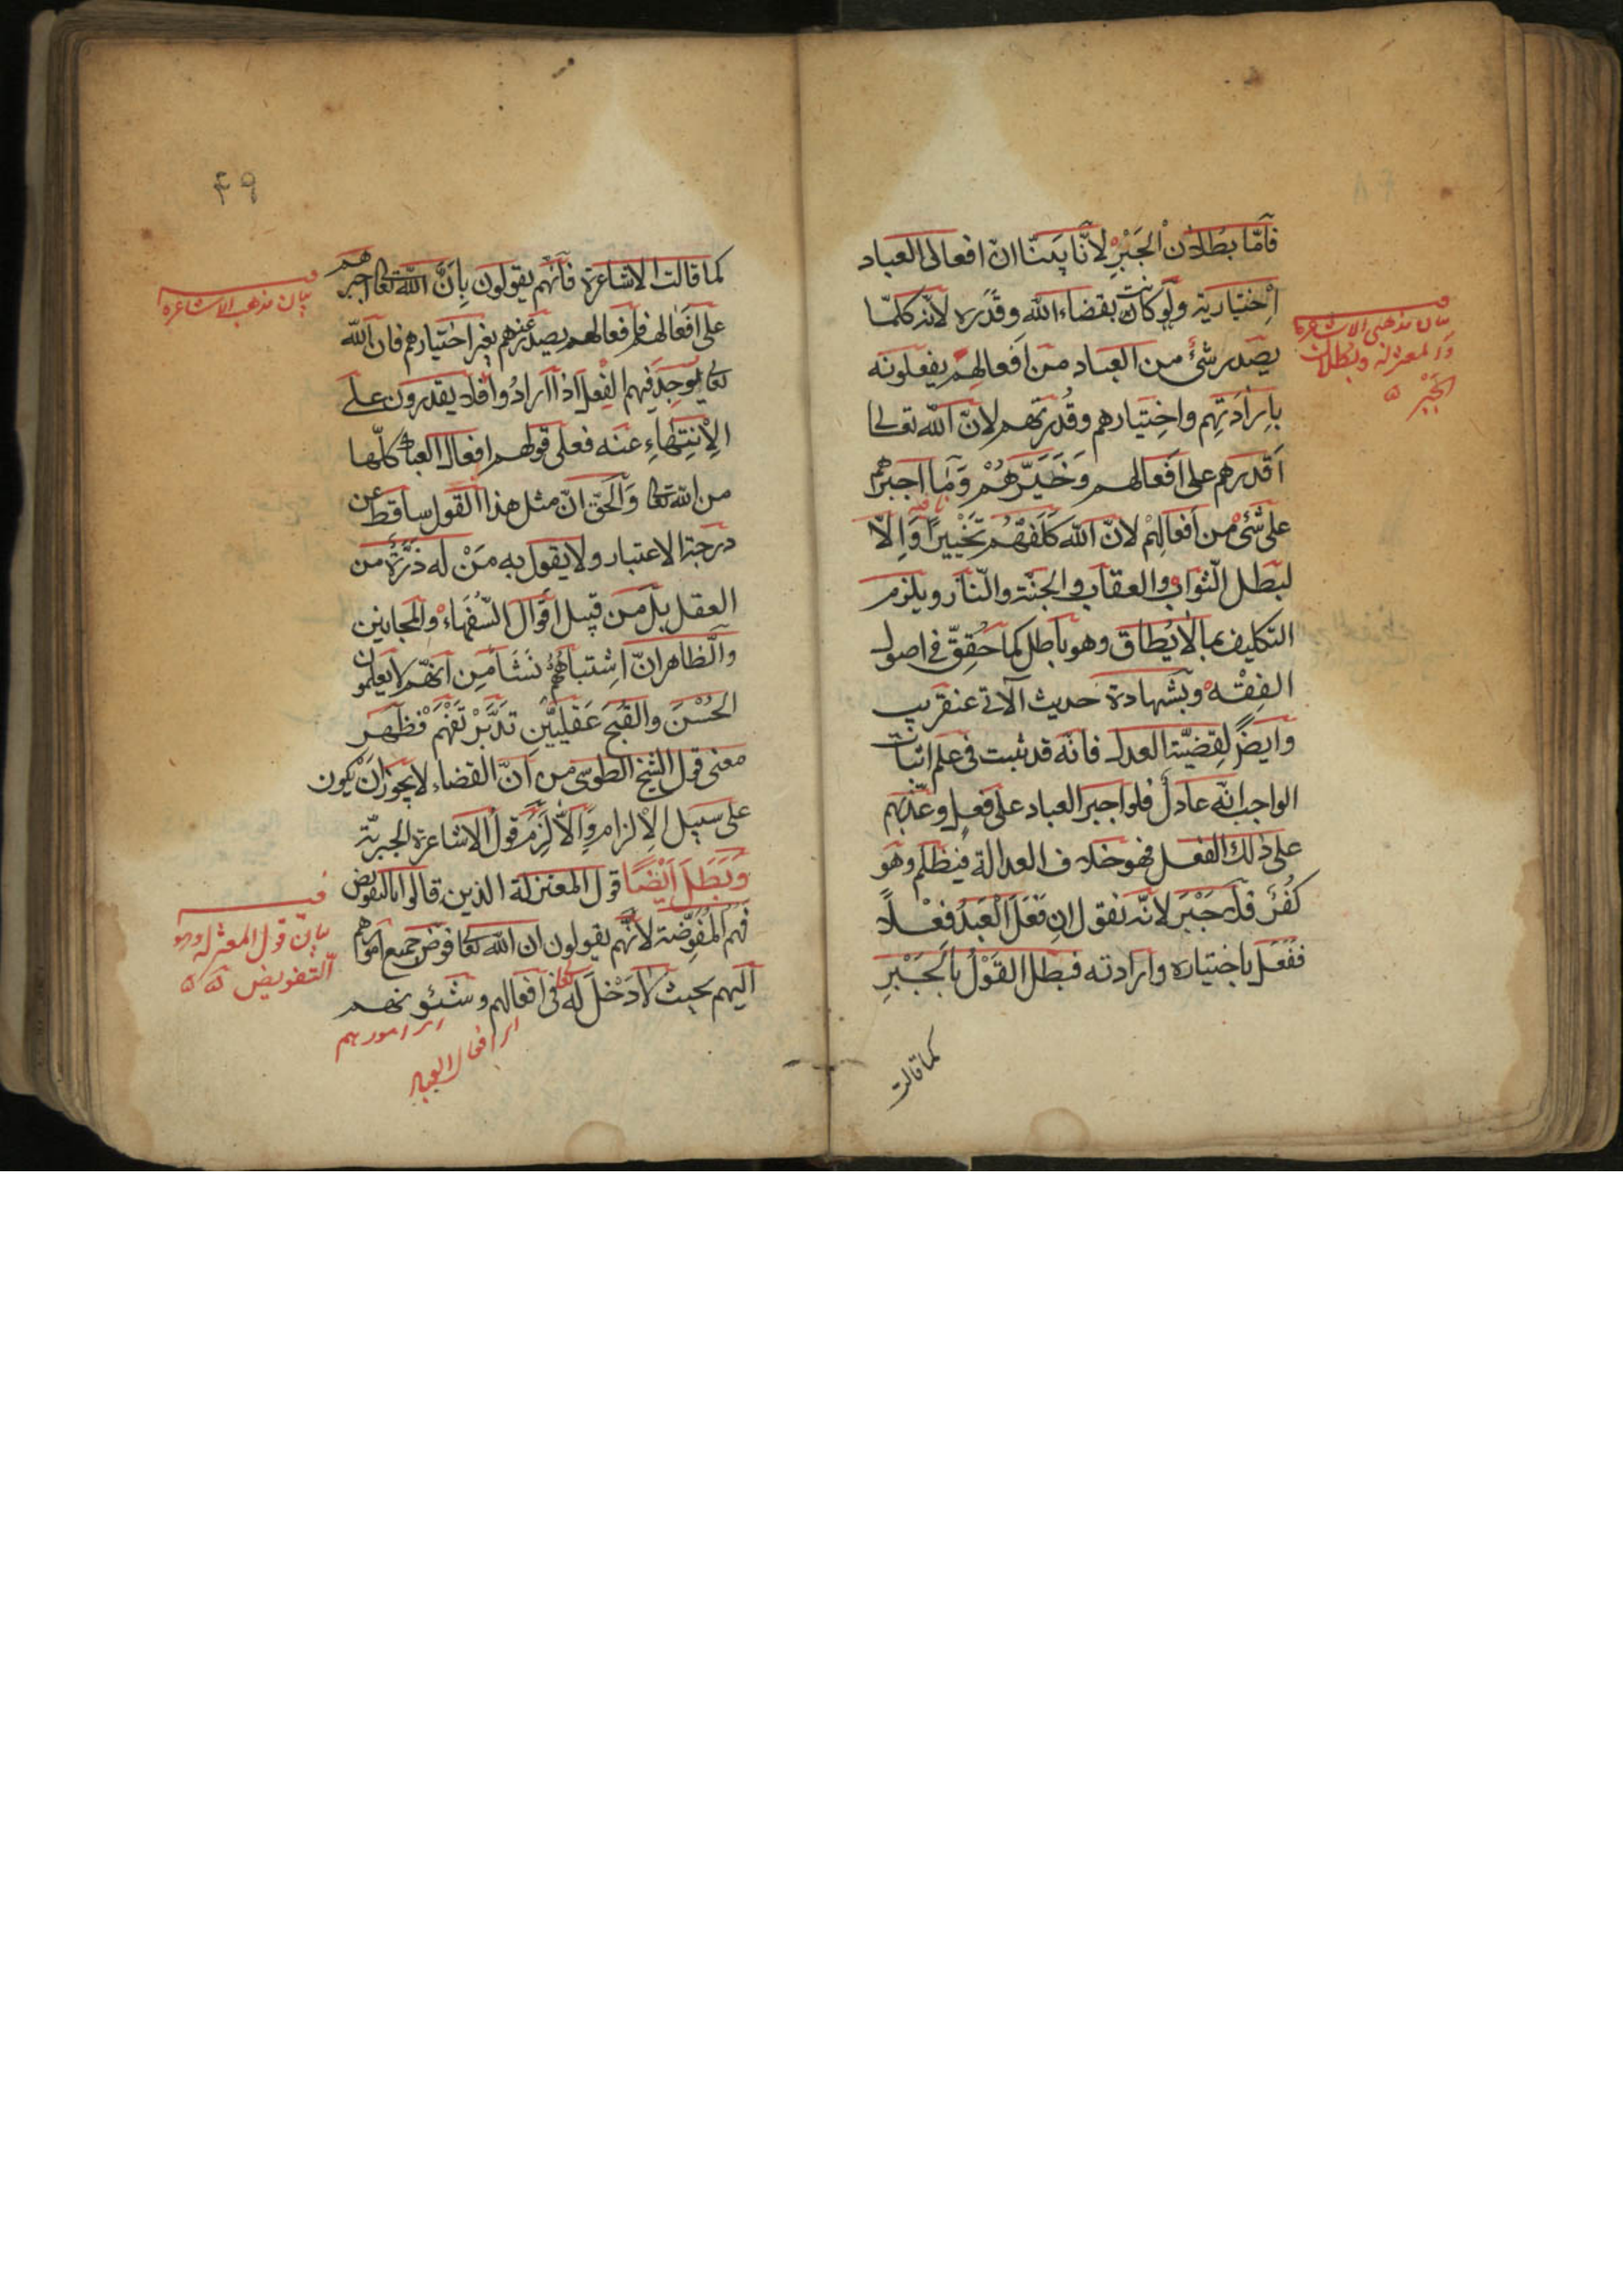 فَاَمّا بطلان الجَبْرِ لانّا بَيَنّا انّ افعالى العباد
اِختيارية ولو كانت بقضاء الله وقَدَره لانّه كلّما
يصدر شئ من العباد من اَفعالهِم يفعلونه
بِاِرَادَتِهِم واخِتيارهم وقُدرتهم لانّ الله تعالى
اَقدرهم على افعالهم وَخَيَّرهُمْ وَمَا اجبرهم
على شَئ من اَفعالِهمْ لانّ الله كَلَّفَهُم تَخْييرًا وَاِلّا
لبَطل الثواب والعقاب والجنّة والنّار ويلزم
التكليف بمالايُطاق وهو باطل كما حُقِقّ فى اصول
الفِقْه وبشهادة حديث الآتى عنقريب
وايضً لِقضيّة العدل فانّه قد ثبت فى علم اثبات
الواجب انّه عادل فلو اجبر العباد على فعل وعذّبهم
على ذلك الفعل فهو خلاف العدالة فيظلم وهو
كُفرٌ فلا جَبْرَ لانّه نقول اِن فَعَلَ العَبدُ فِعْلاً
ففعل باختياره وارادته فبطل القَوْلُ بالجَبْرِ
كما قالت
بيان مذهبى الاشاعرة
والمعتزله وبطلان
الجَبْر
۴۹
كما قالت الاشاعرة فانّهم يقولون بِاَنَّ الله تعالى اجبرهم
على افعالهم فافعالهم يصدر عنهم بغير اختيارهم فان الله
تعالى يُوجِد فيهم الفعل اذا ارادُوا فلا يقدرون على
الاِنتِهَاءِ عنه فعلى قولهم افعال العباد كلّها
من الله تعالى وَالحَقّ انّ مثل هذا القول ساقط عن
درجة الاعتبار ولا يقول به مَنْ له ذَرَّةٌ من
العقل بل من قبيل اَقوال السُّفَهاء والمجانين
والظّاهر انّ اشتباهُهُم نَشَأ مِن اَنّهم لايعلمون
الحُسْنَ والقبح عَقليَّيْنِ تَدَبَّرْ تَفَهَّمْ فظَهَر
معنى قول الشيخ الطوسى من اَنّ القضاء لايجوز اَنْ يكون
على سبيل الاِلزام وَاِلّا لَزِمَ قول الاشاعرة الجبريّة
وَبَطَلَ اَيْضًا قول المعتزلة الذين قالوا بالتفويض
فهم المُفوِّضة لانّهم يقولون ان الله تعالى فوّض جميع امورهم
اليهم بحيث لادَخْلَ لَه تعالى فى افعالهم وشئونهم
اى امورهم
اى افعال العباد
بيان مذهب الاشاعره
بيان قول المعتزله وهو
التفويض